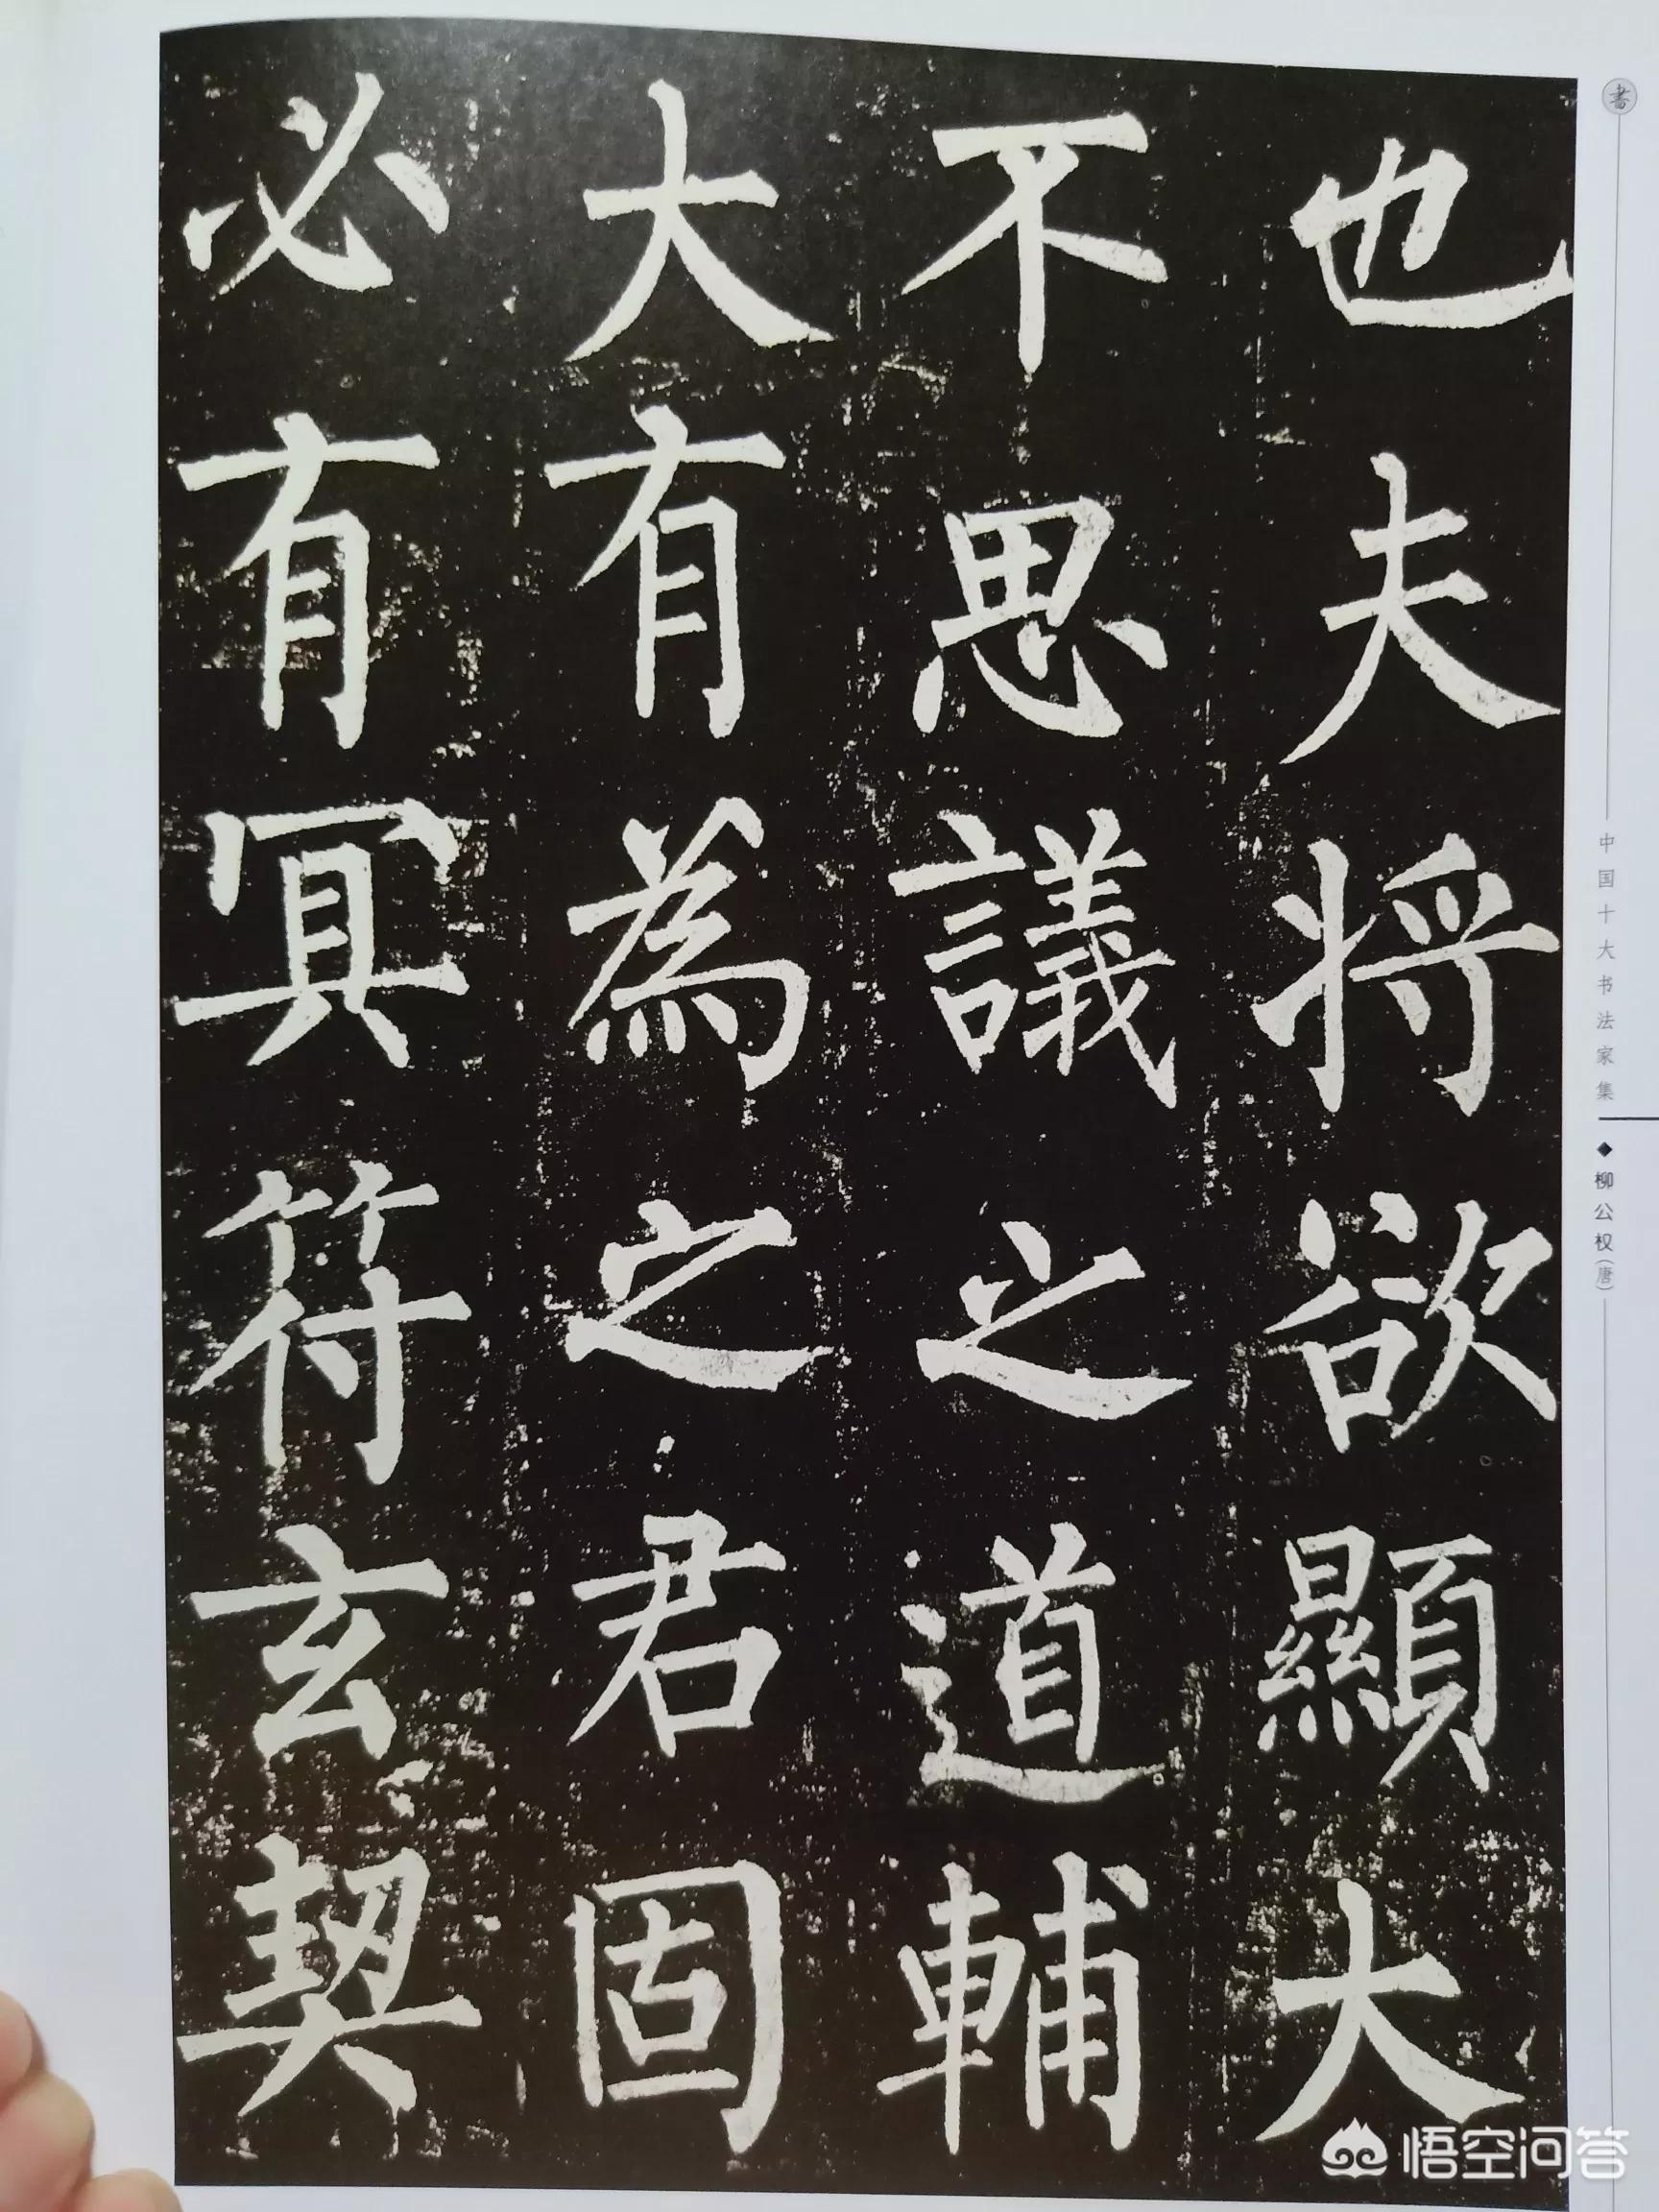 也夫将欲顯大
不思議之道輔
大有為之君固
必有冥符玄契
書
中国十大书法家集
◆柳公权(唐)
悟空问答